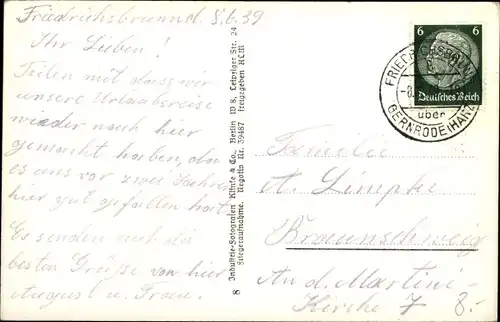 Friedrichsbrunn d. 8.6.39
Ihr Lieben!
Teilen mit dass wir
unsere Urlaubsreise
wieder nach hier
gemacht haben, da
es uns vor zwei Jahren
hier gut gefallen hat.
Es senden euch die
besten Grüße von hier
August u. Frau.
8 Industrie-Fotografen Klinke & Co., Berlin W 8, Leipziger Str. 24
Fliegeraufnahme. Negativ Nr. 39487 freigegeben RLM
6 6
Deutsches Reich
FRIEDRICHSBRUNN
über
GERNRODE (HARZ)
Familie
A. Limpke
Braunschweig
An d. Martini-
Kirche 7
8.-